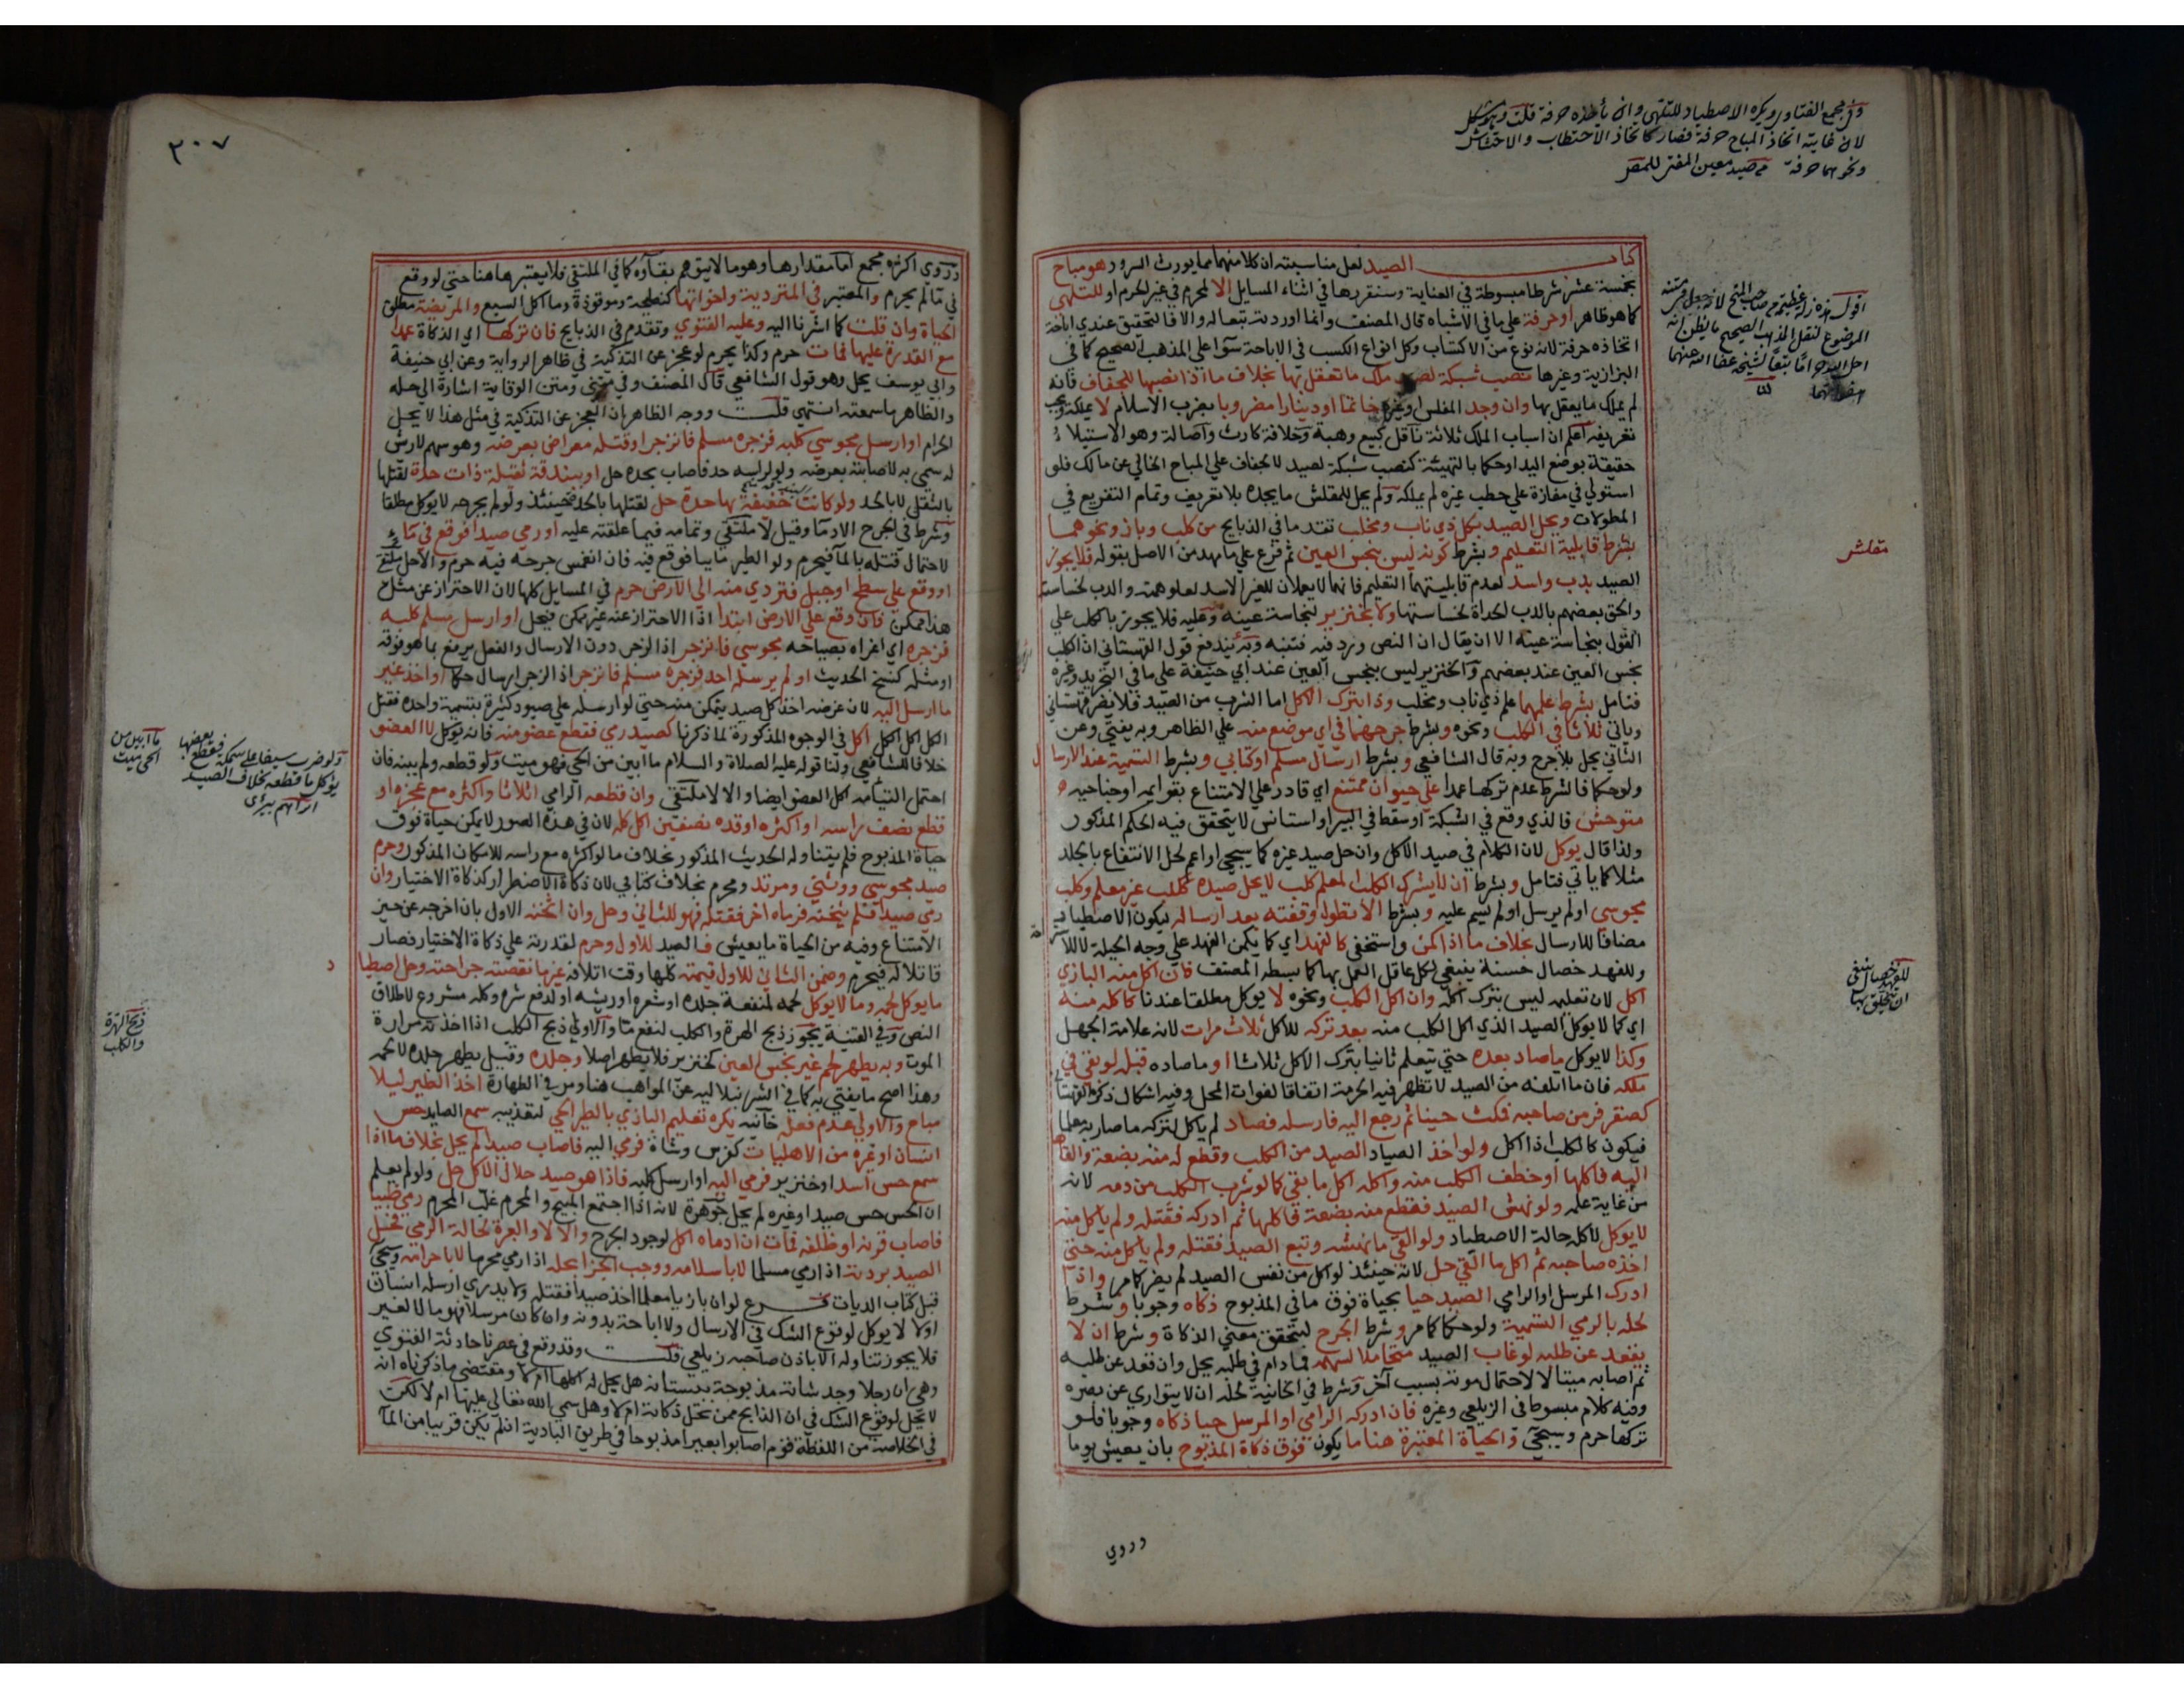 وفي مجمع الفتاوى ويكره الاصطياد للتلهي وان يأخذه حرفة قلت وهو مشكل
لان غايته اتخاذ المباح حرفة فصار كاتخاذ الاحتطاب والاحتشاش
ونحوهما حرفة صيد معين المفتي للمص
كتاب الصيد لعل مناسبته ان كلا منهما مما يورث السرور هو مباح
بخمسة عشر شرطا مبسوطة في العناية وسنقررها في اثناء المسايل الا لمحرم في غير الحرم او للتلهي
كما هو ظاهر او حرفة على ما في الاشباه قال المصنف وانما اوردته تبعا له والا فالتحقيق عندي اباحة
اتخاذه حرفة لانه نوع من الاكتساب وكل انواع الكسب في الاباحة سوا على المذهب الصحيح كما في
البزازية وغيرها نصب شبكة لصيد ملك ما تعقل بها بخلاف ما اذا نصبها للجفاف فانه
لم يملك ما يعقل بها وان وجد المقلش او غيره خاتما او دينارا مضروبا بضرب الاسلام لا يملكه ويجب
تعريفه اعلم ان اسباب الملك ثلاثة ناقل كبيع وهبة وخلافة كارث واصالة وهو الاستيلاء
حقيقة بوضع اليد او حكما بالتهيئة كنصب شبكة لصيد لا لجفاف على المباح الخالي عن مالك فلو
استولي في مفازة على حطب غيره لم يملكه ولم يحل للمقلش ما يجده بلا تعريف وتمام التفريع في
المطولات ويحل الصيد بكل ذي ناب ومخلب تقدما في الذبايح من كلب وباز ونحوهما
بشرط قابلية التعليم وبشرط كونه ليس بنجس العين ثم فرع على ما مهد من الاصل بقوله فلا يجوز
الصيد بدب واسد لعدم قابليتهما التعليم فانهما لا يعملان للغير الاسد لعلو همته والدب لخساسته
والحق بعضهم بالدب الحداة لخساستها ولا بخنزير لنجاسة عينه وعليه فلا يجوز بالكلب علي
القول بنجاسة عينه الا ان يقال ان النص ورد فيه فتنبه وبه يندفع قول القهستاني ان الكلب
نجس العين عند بعضهم والخنزير ليس بنجس العين عند ابي حنيفة على ما في التجريد وغيره
فتامل بشرط علمهما علم ذي ناب ومخلب وذا بترك الاكل اما الشرب من الصيد فلا يضر قهستاني
وياتي ثلاثا في الكلب ونحوه وبشرط جرحهما في اي موضع منه علي الظاهر وبه يفتي وعن
الثاني يحل بلا جرح وبه قال الشافعي وبشرط ارسال مسلم او كتابي وبشرط التسمية عند الارسال
ولو حكما فالشرط عدم تركها عمدا علي حيوان ممتنع اي قادر علي الامتناع بقوايمه او جناحيه
متوحش فالذي وقع في الشبكة او سقط في البير او استانس لا يتحقق فيه الحكم المذكور
ولذا قال يوكل لان الكلام في صيد الاكل وان حل صيد غيره كما سيجي او اعم لحل الانتفاع بالجلد
مثلا كما ياتي فتامل وبشرط ان لا يشرك الكلب المعلم كلب لا يحل صيده ككلب غير معلم وكلب
مجوسي او لم يرسل او لم يسم عليه وبشرط الا تطول وقفته بعد ارساله ليكون الاصطياد
مضافا للارسال بخلاف ما اذا كمن واستخفي كالفهد اي كما يكمن الفهد علي وجه الحيلة لا للاستراحة
وللفهد خصال حسنة ينبغي لكل عاقل العمل بها كما بسطه المصنف فان اكل منه البازي
اكل لان تعليمه ليس بترك اكله وان اكل الكلب ونحوه لا يوكل مطلقا عندنا كاكله منه
اي كما لا يوكل الصيد الذي اكل الكلب منه بعد تركه للاكل ثلاث مرات لانه علامة الجهل
وكذا لا يوكل ما صاد بعده حتي يتعلم ثانيا بترك الاكل ثلاثا او ما صاده قبله لو بقي في
ملكه فان ما اتلفه من الصيد لا تظهر فيه الحرمة اتفاقا لفوات المحل وفيه اشكال ذكره القهستاني
كصقر فر من صاحبه فمكث حينا ثم رجع اليه فارسله فصاد لم ياكل لتركه ما صار به علما
فيكون كالكلب اذا اكل ولو اخذ الصياد الصيد من الكلب وقطع له منه بضعة والقاها
اليه فاكلها او خطف الكلب منه واكله اكل ما بقي كما لو شرب الكلب من دمه لانه
من غاية علمه ولو نهش الصيد فقطع منه بضعة فاكلها ثم ادركه فقتله ولم ياكل منه
لا يوكل لاكله حالة الاصطياد ولو القي ما نهشه وتبع الصيد فقتله ولم ياكل منه حتي
اخذه صاحبه ثم اكل ما القي حل لانه حينئذ لو اكل من نفس الصيد لم يضر كما مر واذا
ادرك المرسل او الرامي الصيد حيا بحياة فوق ما في المذبوح ذكاه وجوبا وشرط
لحله بالرمي التسمية ولو حكما كما مر وشرط الجرح ليتحقق معني الذكاة وشرط ان لا
يقعد عن طلبه لو غاب الصيد متحاملا لسهمه فما دام في طلبه يحل وان قعد عن طلبه
ثم اصابه ميتا لا لاحتمال موته بسبب آخر وشرط في الخانية لحله ان لا يتواري عن بصره
وفيه كلام مبسوط في الزيلعي وغيره فان ادركه الرامي او المرسل حيا ذكاه وجوبا فلو
تركها حرم وسيجي والحياة المعتبرة هنا ما يكون فوق ذكاة المذبوح بان يعيش يوما
وروي
مقلش
للفهد خصال ينبغي
ان يتخلق بها
٣٠٧
وروي اكثره مجمع اما مقدارها وهو ما لا يتوهم بقاؤه كما في الملتقي فلا يعتبر هاهنا حتي لو وقع
في ما لم يحرم والمعتبر في المتردية واخواتها كنطيحة وموقوذة وما اكل السبع والمريضة مطلق
الحياة وان قلت كما اشرنا اليه وعليه الفتوي وتقدم في الذبايح فان تركها اي الذكاة عمدا
مع القدرة عليها فمات حرم وكذا يحرم لو عجز عن التذكية في ظاهر الرواية وعن ابي حنيفة
وابي يوسف يحل وهو قول الشافعي قال المصنف وفي متني ومتن الوقاية اشارة الي حله
والظاهر ما سمعته انتهي قلت ووجه الظاهر ان العجز عن التذكية في مثل هذا لا يحل
الحرام او ارسل مجوسي كلبه فزجره مسلم فانزجر او قتله معراض بعرضه وهو سهم لا ريش
له سمي به لاصابته بعرضه ولو لراسه حد فاصاب بحده حل او بندقة ثقيلة ذات حدة لقتلها
بالثقل لا بالحد ولو كانت خفيفة بها حدة حل لقتلها بالحد فحينئذ ولو لم يجرحه لا يوكل مطلقا
وشرط في الجرح الادما وقيل لا ملتقي وتمامه فيما علقته عليه او رمي صيدا فوقع في ماء
لاحتمال قتله بالما فيحرم ولو الطير مايبا فوقع فيه فان انغمس جرحه فيه حرم والا حل ملتقي
او وقع علي سطح او جبل فتردي منه الي الارض حرم في المسايل كلها لان الاحتراز عن مثل
هذا ممكن فان وقع علي الارض ابتدا اذ الاحتراز عنه غير ممكن فيحل او ارسل مسلم كلبه
فزجره اي اغراه بصياحه مجوسي فانزجر اذ الزجر دون الارسال والفعل يرفع بما هو فوقه
او مثله كنسخ الحديث او لم يرسله احد فزجره مسلم فانزجر اذ الزجر ارسال حكما او اخذ غير
ما ارسل اليه لان غرضه اخذ كل صيد يتمكن منه حتي لو ارسله علي صيود كثيرة بتسمية واحدة فقتل
الكل اكل الكل اكل في الوجوه المذكورة لما ذكرنا كصيد رمي فقطع عضو منه فانه يوكل لا العضو
خلافا للشافعي ولنا قوله عليه الصلاة والسلام ما ابين من الحي فهو ميت ولو قطعه ولم يبنه فان
احتمل التيامه اكل العضو ايضا والا لا ملتقي وان قطعه الرامي اثلاثا واكثره مع عجزه او
قطع نصف راسه او اكثره او قده نصفين اكل كله لان في هذه الصور لا يمكن حياة فوق
حياة المذبوح فلم يتناوله الحديث المذكور بخلاف ما لو اكثره مع راسه للامكان المذكور وحرم
صيد مجوسي ووثني ومرتد ومحرم بخلاف كتابي لان ذكاة الاضطرار كذكاة الاختيار وان
رمي صيدا فلم يثخنه فرماه اخر فقتله فهو للثاني وحل وان اثخنه الاول بان اخرجه عن حيز
الامتناع وفيه من الحياة ما يعيش فالصيد للاول وحرم لقدرته علي ذكاة الاختيار فصار
قاتلا له فيحرم وضمن الثاني للاول قيمته كلها وقت اتلافه غير ما نقصته جراحته وحل اصطياد
ما يوكل لحمه وما لا يوكل لحمه لمنفعة جلده او شعره او ريشه او لدفع شره وكله مشروع لاطلاق
النص وفي القنية يجوز ذبح الهرة والكلب لنفع ما والاولي ذبح الكلب اذا اخذته مرارة
الموت وبه يطهر لحم غير نجس العين كخنزير فلا يطهر اصلا وجلده وقيل يطهر جلده لا لحمه
وهذا اصح ما يفتي به كما في الشرنبلاليه عن المواهب هنا ومر في الطهارة اخذ الطير ليلا
مباح والاولي عدم فعله خانيه يكره تعليم البازي بالطير الحي لتعذيبه سمع الصايد حس
انسان او غيره من الاهليات كفرس وشاة فرمي اليه فاصاب صيدا لم يحل بخلاف ما اذا
سمع حس اسد او خنزير فرمي اليه او ارسل كلبه فاذا هو صيد حلال الاكل حل ولو لم يعلم
ان الحس حس صيد او غيره لم يحل جوهرة لانه اذا اجتمع المبيح والمحرم غلب المحرم رمي ظبيا
فاصاب قرنه او ظلفه فمات ان ادماه اكل لوجود الجرح والا لا والعبرة لحالة الرمي فحل
الصيد بردته اذا رمي مسلما لا باسلامه ووجب الجزا بحله اذا رمي محرما لا باحرامه وسيجي
قبل كتاب الديات فرع لو ان بازيا معلما اخذ صيدا فقتله ولا يدري ارسله انسان
او لا لا يوكل لوقوع الشك في الارسال ولا اباحة بدونه وان كان مرسلا فهو مال الغير
فلا يجوز تناوله الا باذن صاحبه زيلعي قلت وقد وقع في عصرنا حادثة الفتوي
وهي ان رجلا وجد شاته مذبوحة ببستانه هل يحل له اكلها ام لا ومقتضي ما ذكرناه انه
لا يحل لوقوع الشك في ان الذابح ممن تحل ذكاته ام لا وهل سمي الله تعالي عليها ام لا لكن
في الخلاصة من اللقطة قوم اصابوا بعيرا مذبوحا في طريق البادية ان لم يكن قريبا من الما
ولو ضرب سيفا على سمكة فقطع بعضها
يؤكل ما قطعه بخلاف الصيد
ما ابين من
الحي ميت
ذبح الهرة
والكلب